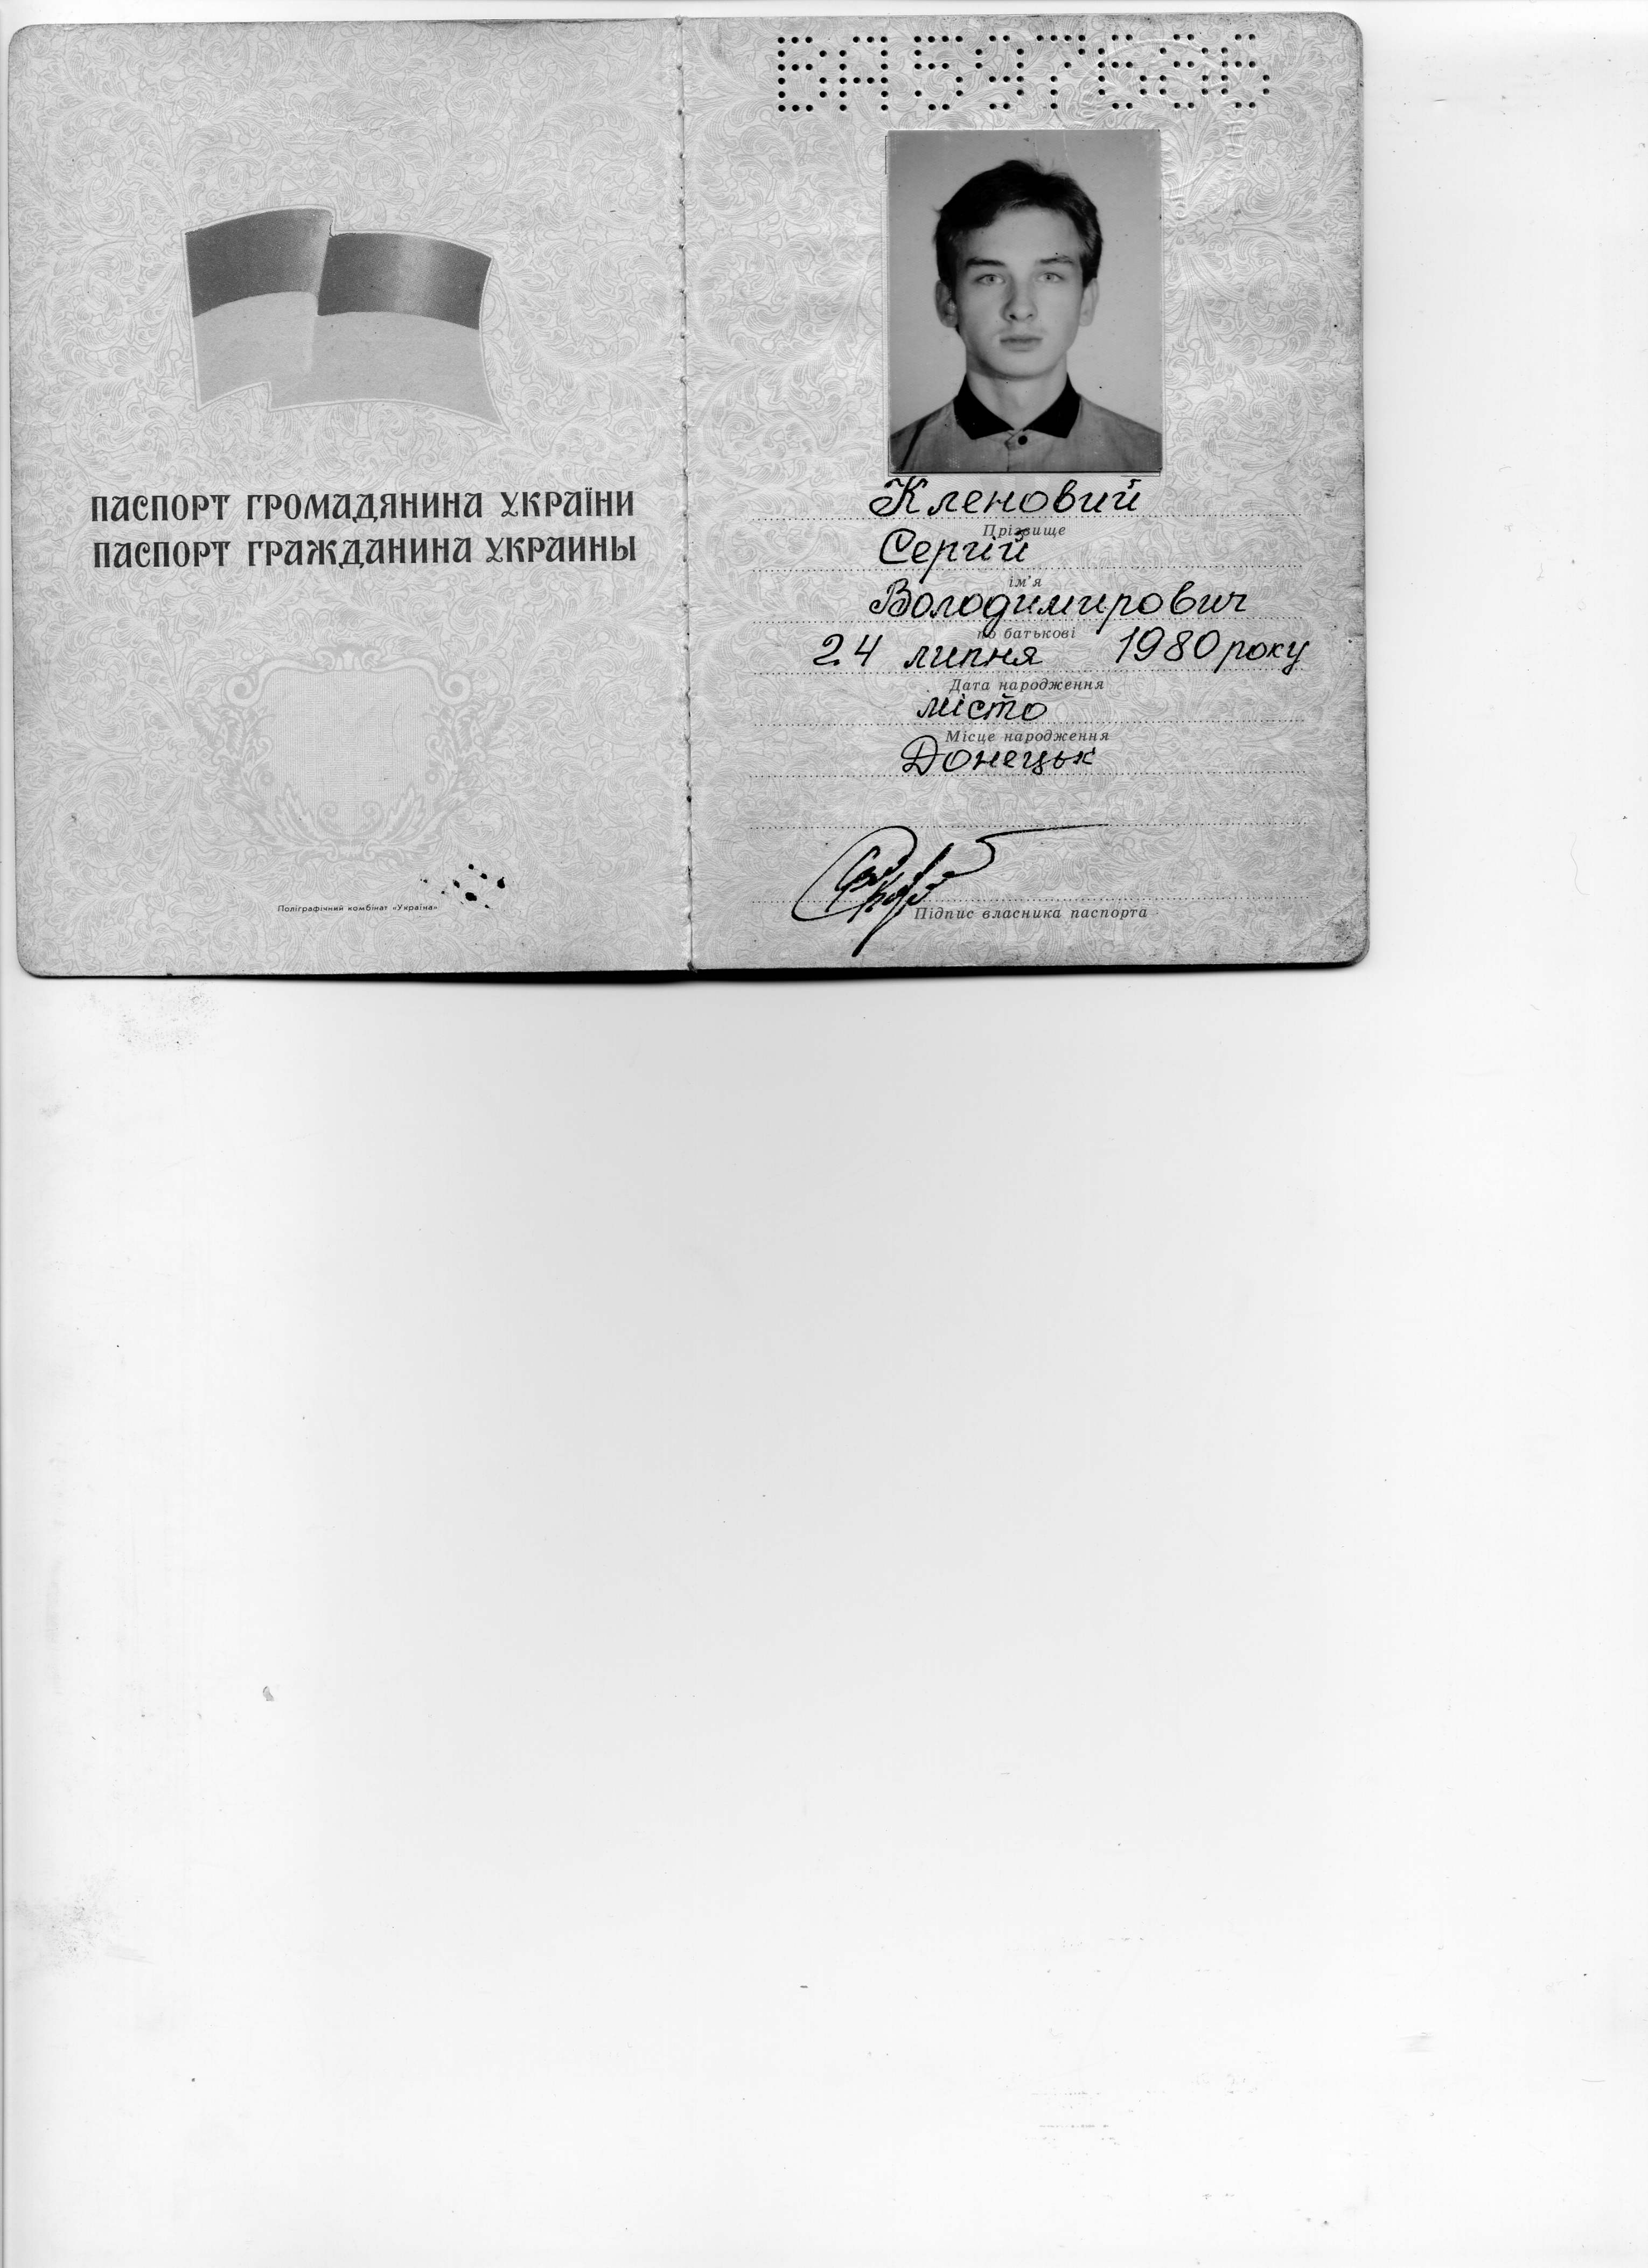 ПАСПОРТ ГРОМАДЯНИНА УКРАЇНИ
ПАСПОРТ ГРАЖДАНИНА УКРАИНЫ
Поліграфічний комбінат «Україна»
Кленовий
Прізвище
Сергій
ім'я
Володимирович
по батькові
24 липня 1980 року
Дата народження
місто
Місце народження
Донецьк
Підпис власника паспорта